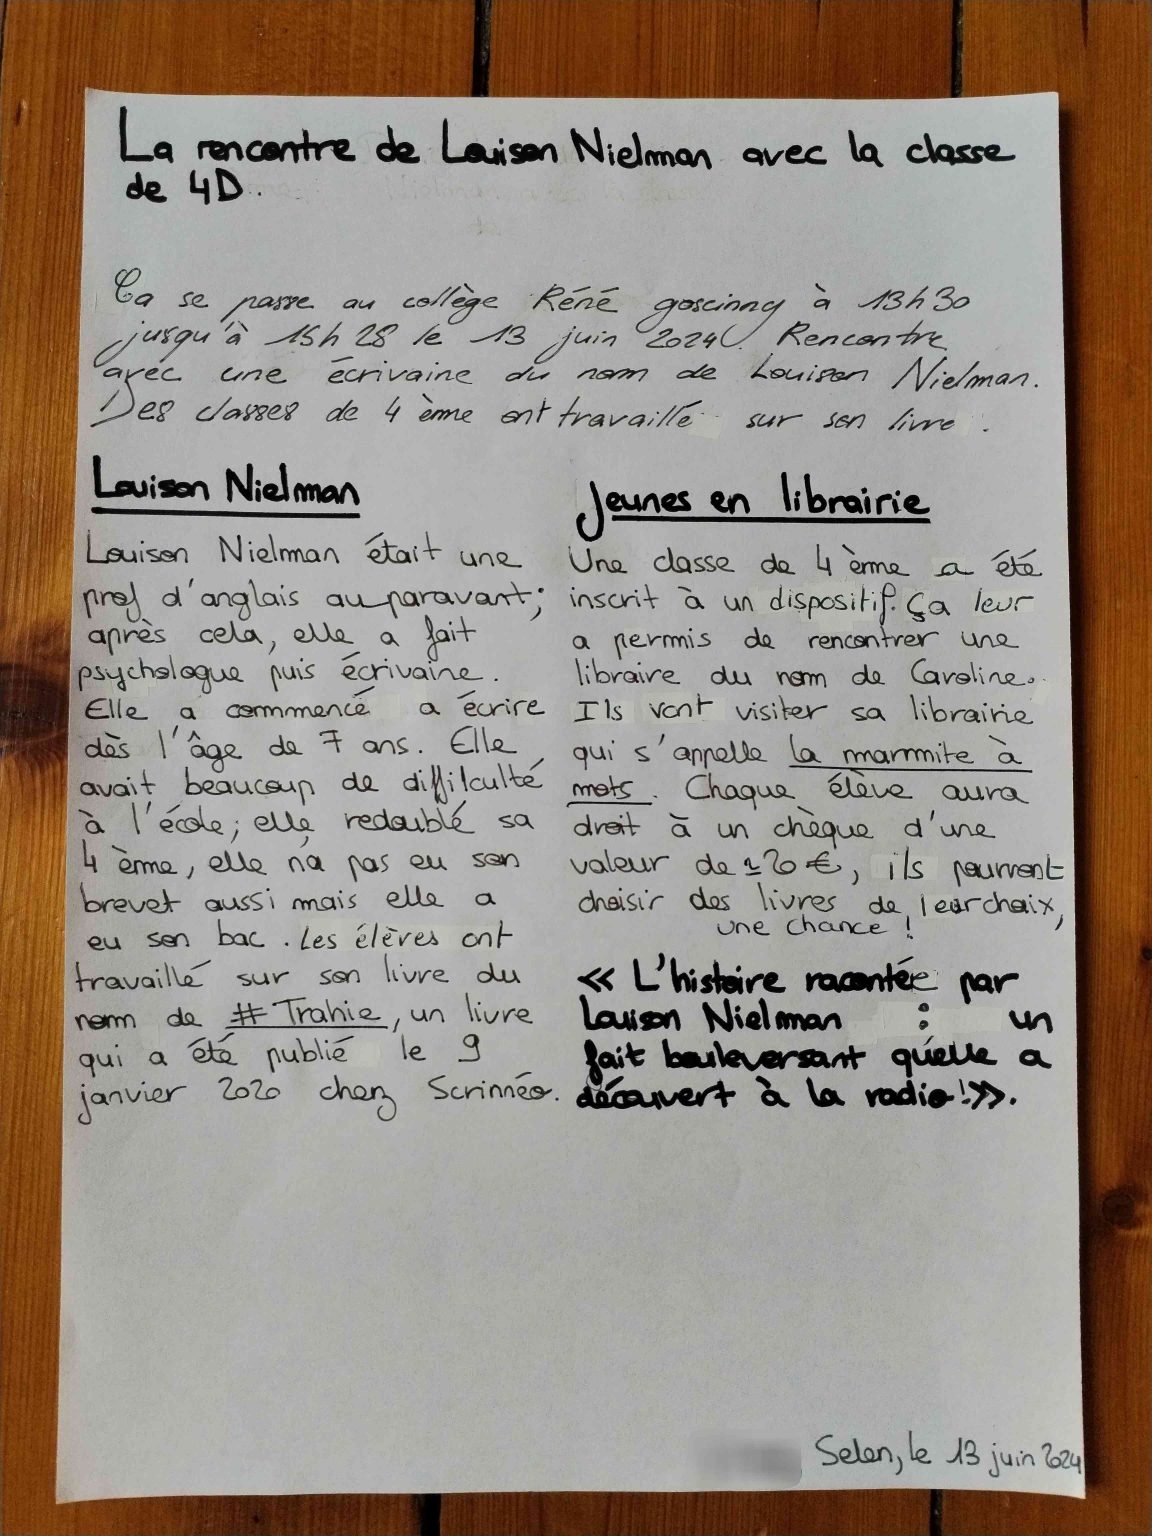 La rencontre de Louison Nielman avec la classe
de 4D.
Ça se passe au collège Réné goscinny à 13h30
jusqu'à 15h28 le 13 juin 2024. Rencontre
avec une écrivaine du nom de Louison Nielman.
Des classes de 4 ème ont travaillé sur son livre.
Louison Nielman
Louison Nielman était une
prof d'anglais au paravant;
après cela, elle a fait
psychologue puis écrivaine.
Elle a commencé a écrire
dès l'âge de 7 ans. Elle
avait beaucoup de diffilculté
à l'école; elle redoublé sa
4 ème, elle n'a pas eu son
brevet aussi mais elle a
eu son bac. Les élèves ont
travaillé sur son livre du
nom de # Trahie, un livre
qui a été publié le 9
janvier 2020 chez Scrinnéo.
Jeunes en librairie
Une classe de 4 ème a été
inscrit à un dispositif. Ça leur
a permis de rencontrer une
libraire du nom de Caroline.
Ils vont visiter sa librairie
qui s'appelle la marmite à
mots. Chaque élève aura
droit à un chèque d'une
valeur de ≃20 €, ils pourront
choisir des livres de leur choix,
une chance !
« L'histoire racontée par
Louison Nielman : un
fait bouleversant qu'elle a
découvert à la radio!».
Selen, le 13 juin 2024